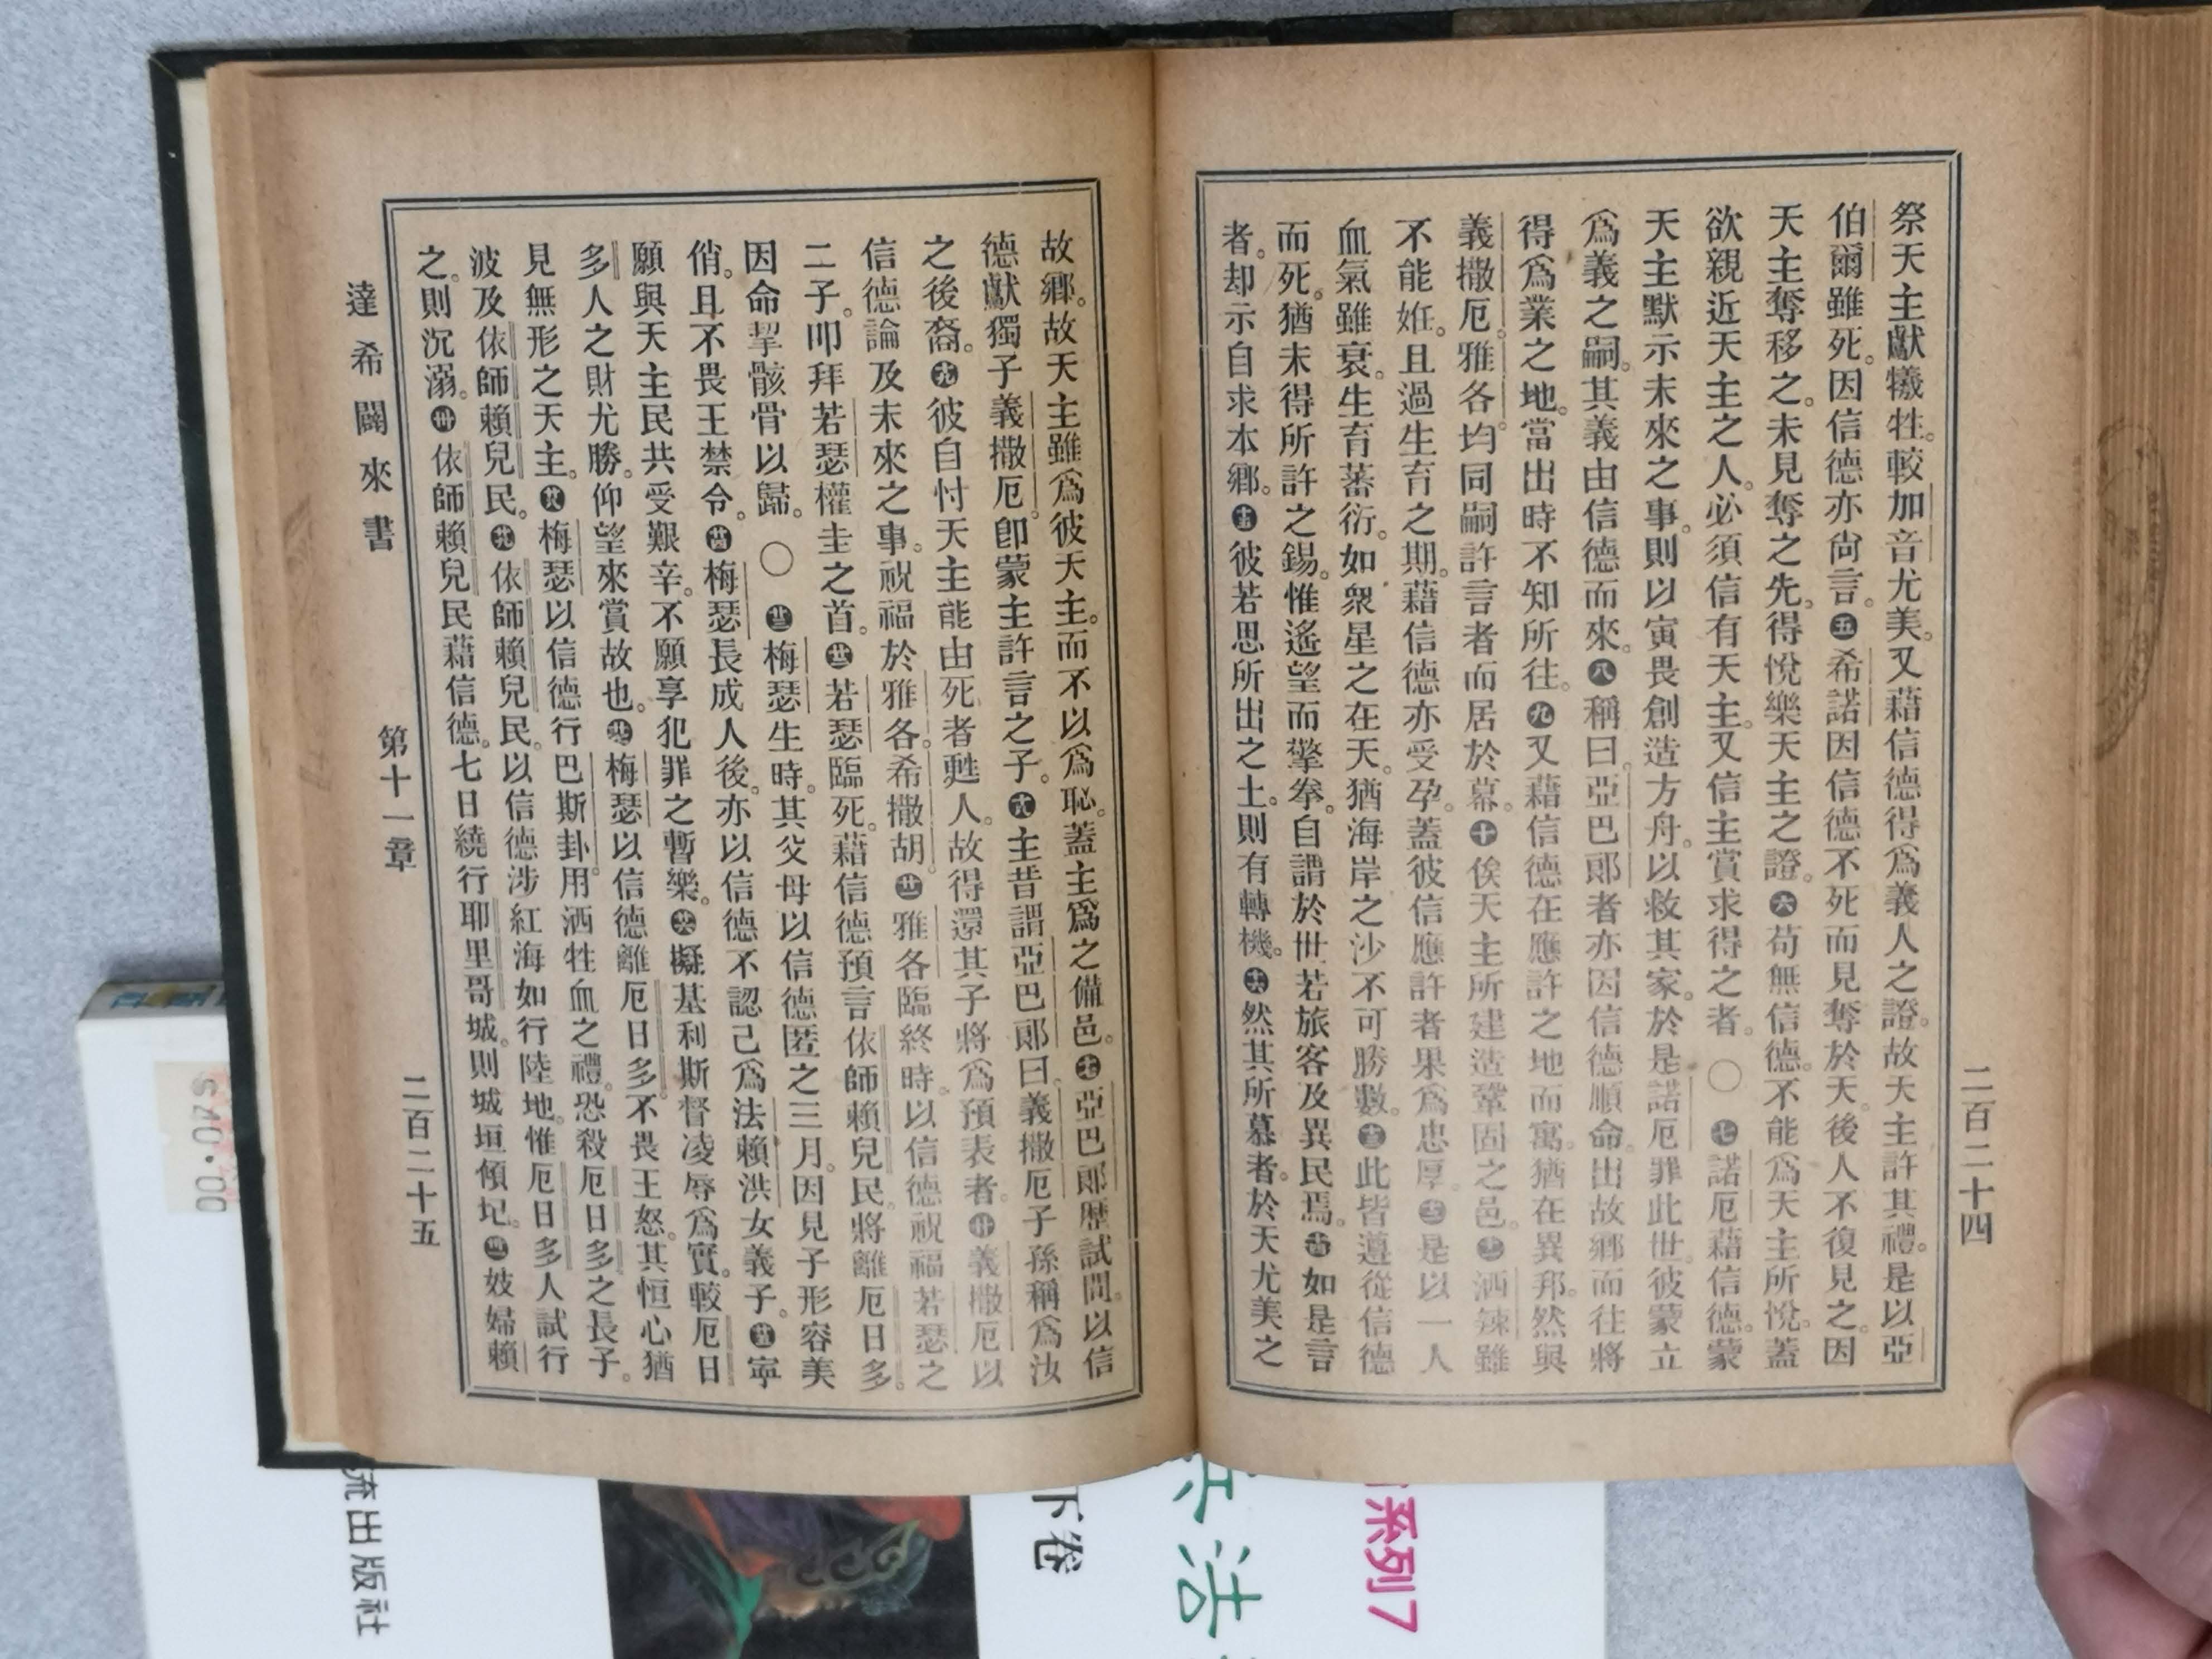 二百二十四
祭天主獻犧牲。較加音尤美。又藉信德得爲義人之證。故天主許其禮。是以亞
伯爾雖死。因信德亦尙言。㊄希諾因信德不死而見奪於天。後人不復見之。因
天主奪移之。未見奪之先。得悅樂天主之證。㊅苟無信德。不能爲天主所悅。蓋
欲親近天主之人。必須信有天主。又信主賞求得之者。〇㊆諾厄藉信德。蒙
天主默示未來之事。則以寅畏創造方舟。以救其家。於是諾厄罪此世。彼蒙立
爲義之嗣。其義由信德而來。㊇稱曰。亞巴郞者亦因信德順命。出故鄉而往將
得爲業之地。當出時不知所往。㊈又藉信德在應許之地而寓。猶在異邦。然與
義撒厄。雅各。均同嗣許言者而居於幕。㊉俟天主所建造鞏固之邑。⑪洒辣雖
不能妊。且過生育之期。藉信德亦受孕。蓋彼信應許者果爲忠厚。⑫是以一人
血氣雖衰。生育蕃衍。如衆星之在天。猶海岸之沙不可勝數。⑬此皆遵從信德
而死。猶未得所許之錫。惟遙望而擎拳。自謂於世若旅客及異民焉。⑭如是言
者。却示自求本鄉。⑮彼若思所出之土。則有轉機。⑯然其所慕者。於天尤美之
故鄉。故天主雖爲彼天主。而不以爲恥。蓋主爲之備邑。⑰亞巴郞歷試間。以信
德獻獨子義撒厄。卽蒙主許言之子。⑱主昔謂亞巴郞曰。義撒厄子孫稱爲汝
之後裔。⑲彼自忖天主能由死者甦人。故得還其子將爲預表者。⑳義撒厄以
信德論及未來之事。祝福於雅各。希撒胡。㉑雅各臨終時。以信德祝福若瑟之
二子。叩拜若瑟權圭之首。㉒若瑟臨死。藉信德預言依師賴兒民。將離厄日多。
因命挈骸骨以歸。〇㉓梅瑟生時。其父母以信德匿之三月。因見子形容美
俏。且不畏王禁令。㉔梅瑟長成人後。亦以信德不認己爲法賴洪女義子。㉕寧
願與天主民共受艱辛。不願享犯罪之暫樂。㉖擬基利斯督凌辱爲實。較厄日
多人之財尤勝。仰望來賞故也。㉗梅瑟以信德離厄日多。不畏王怒。其恒心猶
見無形之天主。㉘梅瑟以信德行巴斯卦。用洒牲血之禮。恐殺厄日多之長子。
波及依師賴兒民。㉙依師賴兒民。以信德涉紅海如行陸地。惟厄日多人試行
之。則沉溺。㉚依師賴兒民藉信德。七日繞行耶里哥城。則城垣傾圮。㉛妓婦賴
達希闢來書　第十一章　二百二十五
流出版社
下卷
兵法
系列7